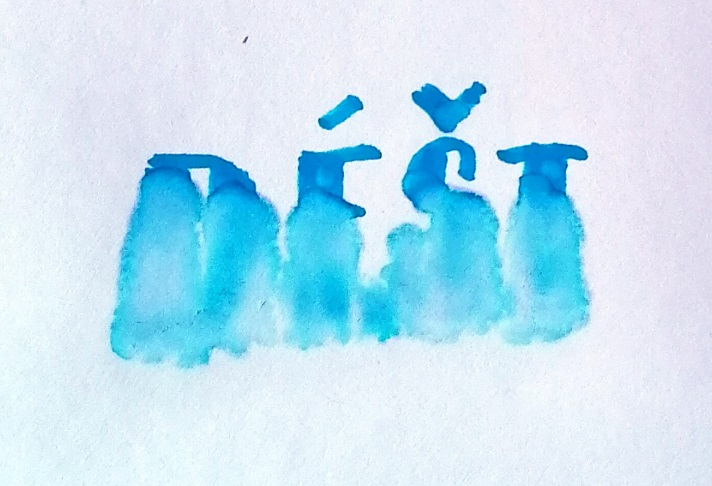 DÉŠT